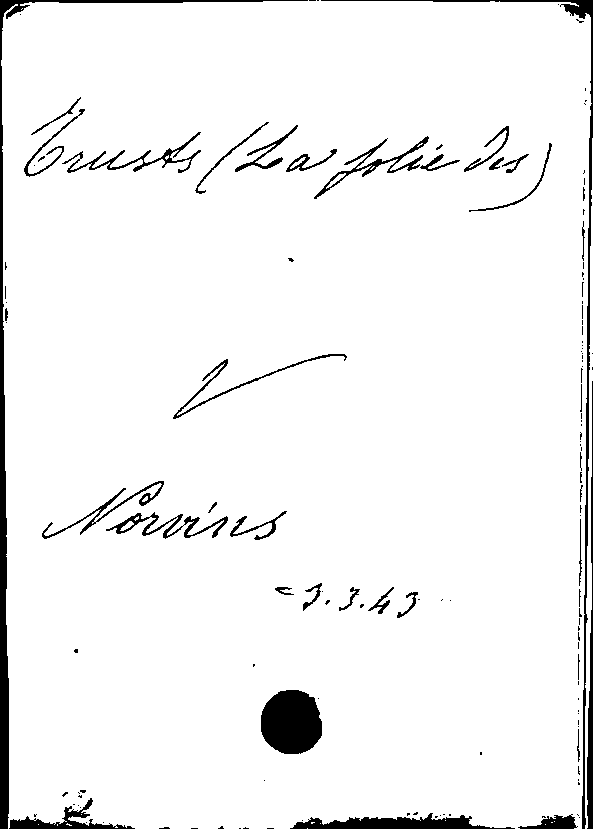 Trusts (La folie des)
Norvins
= 3.3.43